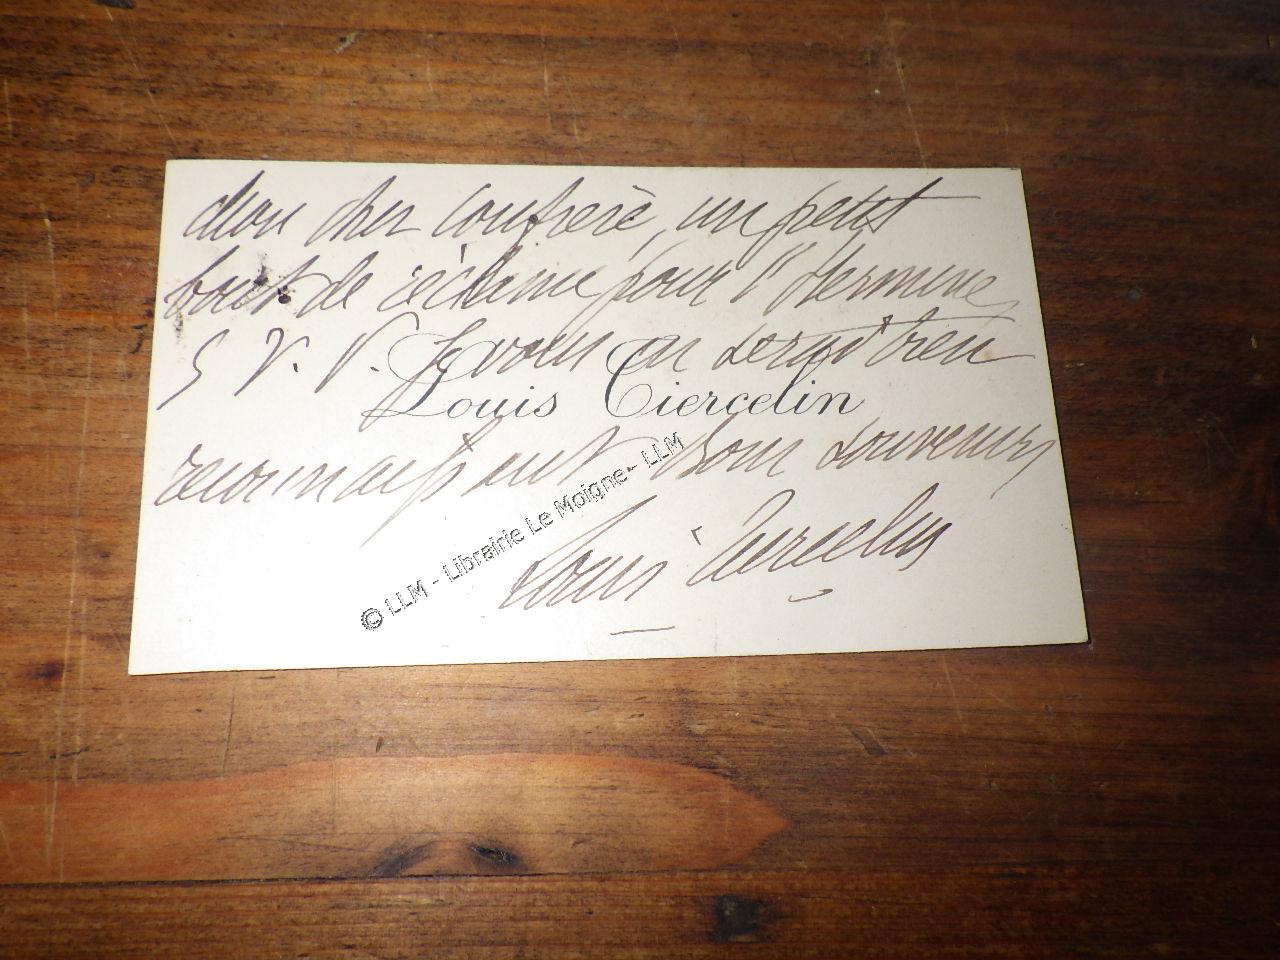 Mon cher Confrère, un petit
bout de réclame pour l'Hermine,
S. V. P. Je vous en serai bien
Louis Tiercelin
reconnaissant. Bons souvenirs
Louis Tiercelin
© LLM - Librairie Le Moigne - LLM